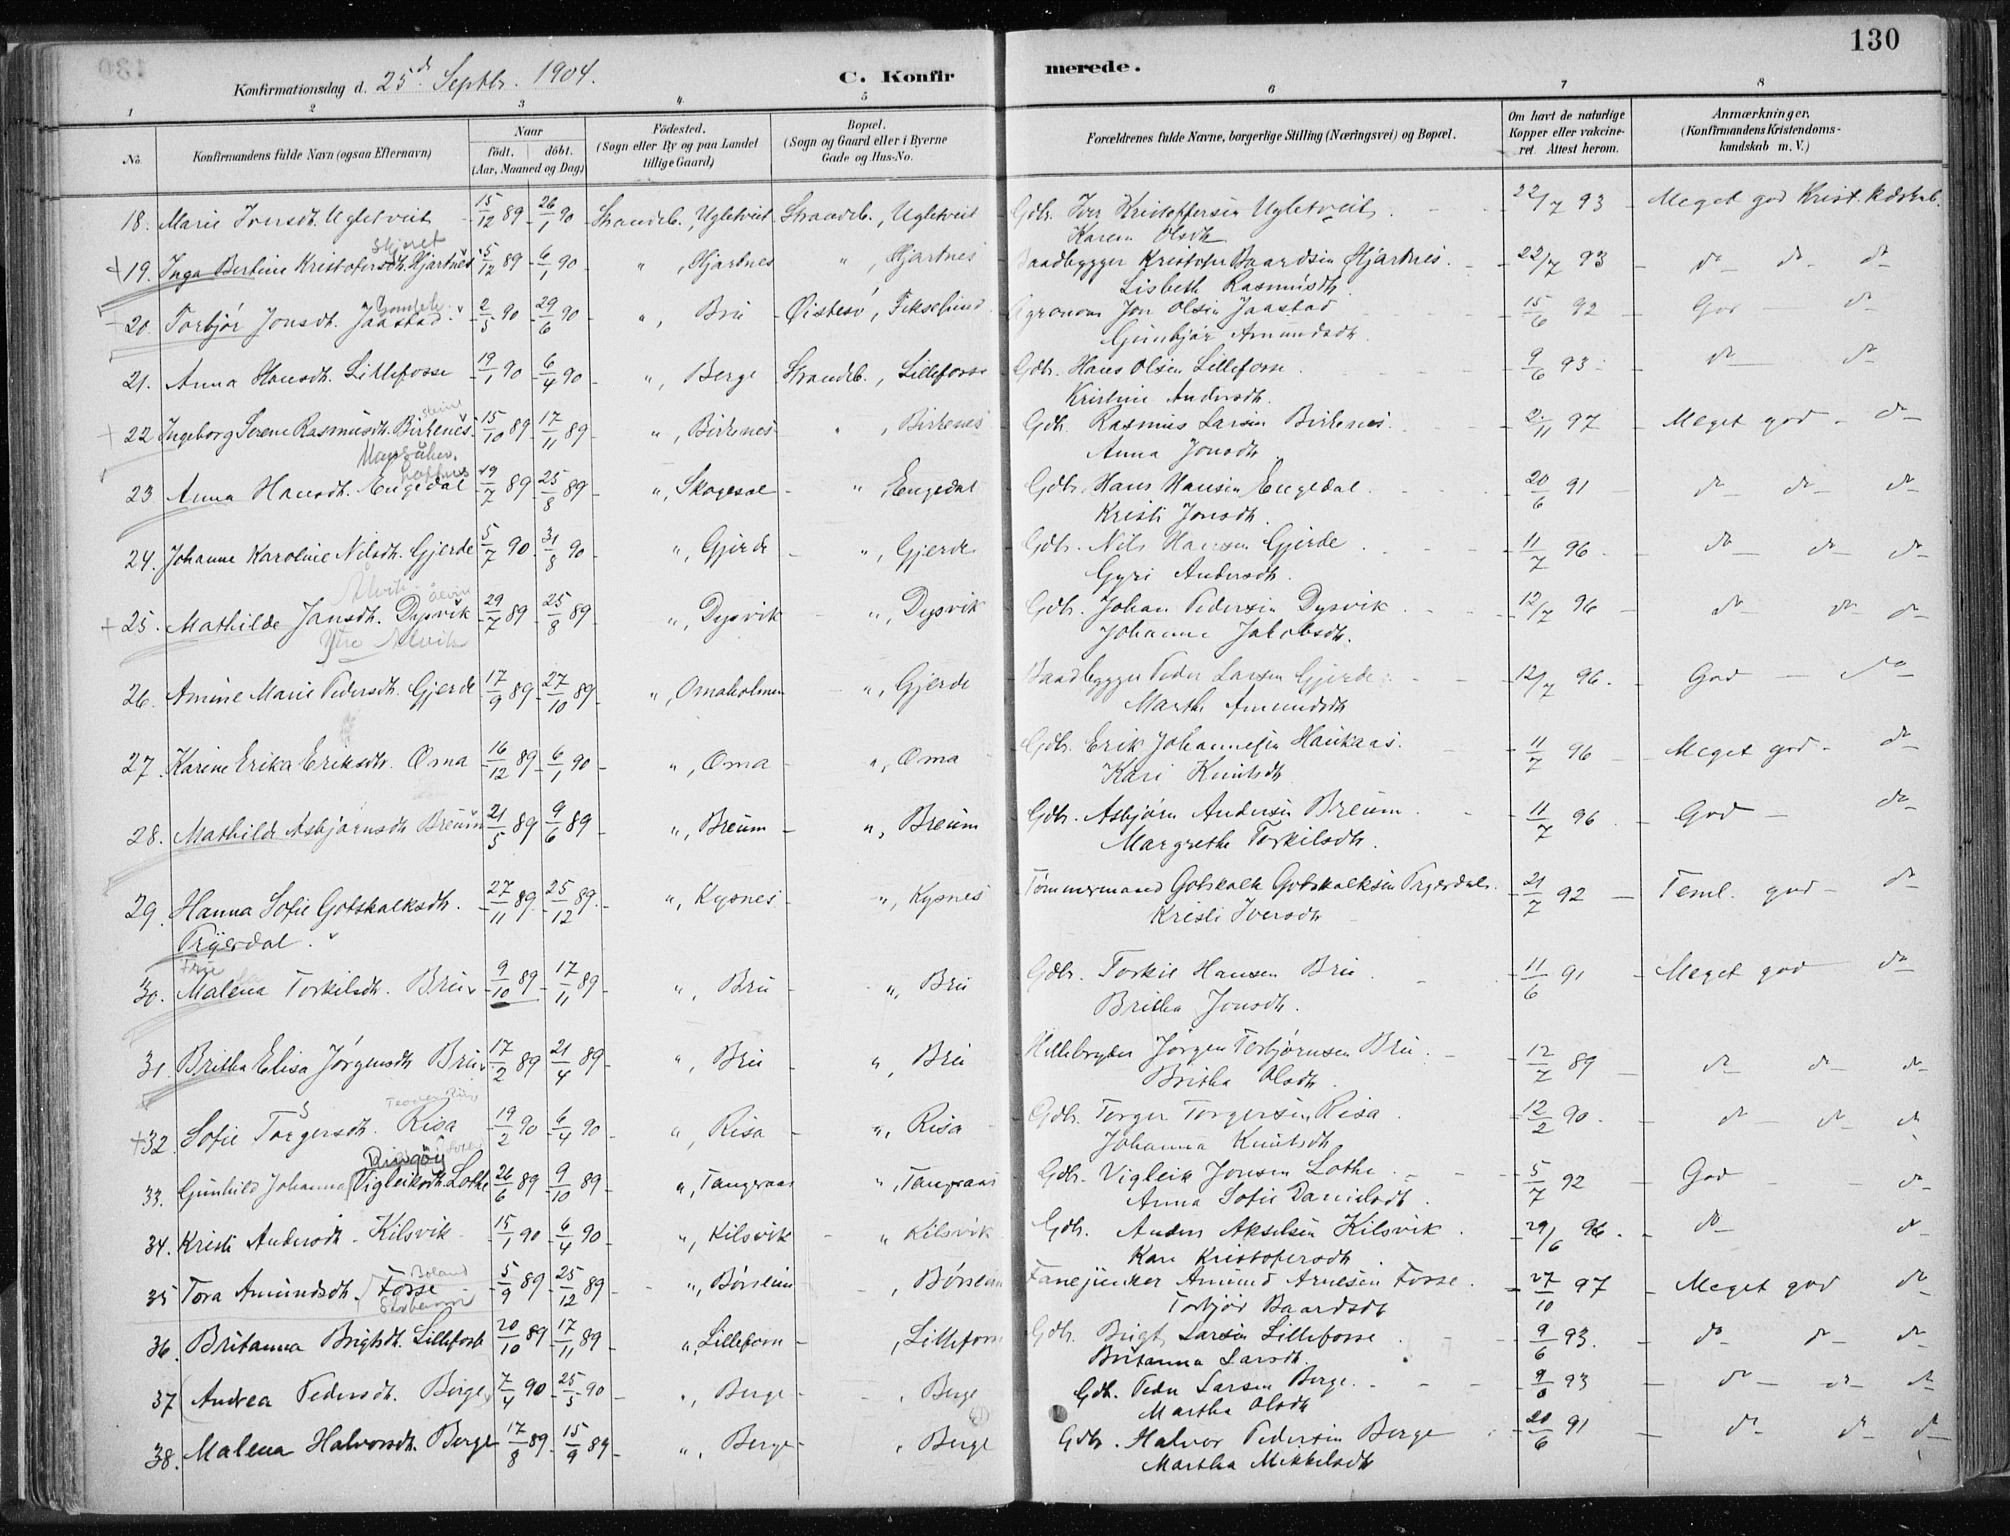 130
Konfirmationsdag d. 25de Septbr. 1904.
C. Konfirmerede.
1 2 3 4 5 6 7 8
No.
Konfirmandens fulde Navn (ogsaa Efternavn)
Naar
født. døbt.
(Aar, Maaned og Dag)
Fødested.
(Sogn eller By og paa Landet
tillige Gaard)
Bopæl.
(Sogn og Gaard eller i Byerne
Gade og Hus-No.
Forældrenes fulde Navne, borgerlige Stilling (Næringsvei) og Bopæl.
Om havt de naturlige
Kopper eller vakcineret.
Attest herom.
Anmærkninger,
(Konfirmandens Kristendomskundskab
m. V.)
18. Marie Iversdt. Ugletveit 15/12 89 26/1 90 Strandeb., Ugletveit Strandeb., Ugletveit Gdbr. Iver Kristoffersen Ugletveit 22/7 93 Meget god Krist. kdskab.
Karen Olsdt.
19. Inga Bertine Kristofersdt. Hjartnes 5/12 89 6/1 90 ", Hjartnes ", Hjartnes Baadbygger Kristofer Baardsen Hjartnes 22/7 93 do do do
Lisbeth Rasmusdt.
20. Torbjør Jonsdt. Jaastad 2/5 90 29/6 90 ", Bru Østesø, Fiksesund Agronom Jon Olsen Jaastad 15/6 92 God do
Gunbjør Amundsdt.
21. Anna Hansdt. Lillefosse 19/1 90 6/4 90 ", Berge Strandeb., Lillefosse Gdbr. Hans Olsen Lillefosse 9/6 93 do do
Kristine Andersdt.
22 Ingeborg Serene Rasmusdt. Birkenes 15/10 89 17/11 89 ", Birkenes ", Birkenes Gdbr. Rasmus Larsen Birkenes 2/11 97 Meget god do
Anna Jonsdt.
23. Anna Hansdt. Engedal 19/7 89 25/8 89 ", Skogesal ", Engedal Gdbr. Hans Hansen Engedal 20/6 91 do do do
Kristi Jonsdt.
24. Johanne Karoline Nilsdt. Gjerde 5/7 90 31/8 90 ", Gjerde ", Gjerde Gdbr. Nils Hansen Gjerde 11/7 96 do do do
Gyri Andersdt.
25. Mathilde Jansdt. Dysvik 29/7 89 25/8 89 ", Dysvik ", Dysvik Gdbr. Johan Pedersen Dysvik 12/7 96 do do do
Alvik
Johanne Jakobsdt.
26. Amine Marie Pedersdt. Gjerde 17/9 89 27/10 89 ", Omaholmen ", Gjerde Baadbygger Peder Larsen Gjerde 12/7 96 God do
Marthe Amundsdt
27. Karine Erika Eriksdt. Oma 16/12 89 6/1 90 ", Oma ", Oma Gdbr. Erik Johannesen Haukaas 11/7 96 Meget god do
Kari Knutsdt
28. Mathilde Asbjørnsdt Breum 21/5 89 9/6 89 ", Breum ", Breum Gdbr. Asbjørn Andersen Breum 11/7 96 God do
Margrethe Torkilsdt.
29. Hanna Sofie Gotskalksdt. 27/11 89 25/12 89 ", Kysnes ", Kysnes Tømmermand Gotskalk Gotskalksen Trijerdal 21/7 92 Teml. god do
Trijerdal.
Kristi Iversdt
30. Malena Torkilsdt. Bru 9/10 89 17/11 89 ", Bru ", Bru Gdbr. Torkil Hansen Bru 11/6 91 Meget god do
Britha Jonsdt.
31. Britha Elisa Jørgensdt Bru 17/2 89 21/4 89 ", Bru ", Bru Hellebryder Jørgen Torbjørnsen Bru 12/7 89 do do do
Britha Olsdt.
32. Sofie Torgersdt. Risa 19/2 90 6/4 90 ", Risa ", Risa Gdbr. Torger Torgersen Risa 12/2 90 do do do
Johanna Knutsdt
Ringøy
33. Gunhild Johanna Vigleiksdt. Lothe 26/6 89 9/10 89 ", Tangeraas ", Tangeraas Gdbr. Vigleik Jonsen Lothe 5/7 92 God do
Anna Sofie Danielsdt.
34. Kristi Andersdt. Kilsvik 15/1 90 6/4 90 ", Kilsvik " Kilsvik Gdbr. Anders Akselsen Kilsvik 29/6 96 do do
Kari Kristofersdt.
35 Tora Amundsdt. Fosse 5/9 89 25/12 89 ", Børsleim , Børsleim Fanejunker Amund Arnesen Fosse 27/10 97 Meget god do
Boland
Torbjør Baardsdt
36. Britanna Brigtsdt. Lillefosse 20/10 89 17/11 89 ", Lillefosse , Lillefosse Gdbr. Brigt Larsen Lillefosse 9/6 93 do do do
Britanna Larsdt.
37 Andrea Pedersdt. Berge 7/4 90 25/5 90 ", Berge , Berge Gdb. Peder Larsen Berge 9/6 93 do do do
Martha Olsdt
38. Malena Halvorsdt. Berge 17/8 89 15/9 89 ", Berge , Berge Gdbr. Halvor Pedersen Berge 20/6 91 do do do
Martha Mikkelsdt